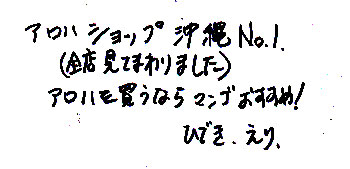 アロハショップ沖縄No.1.
(全店見てまわりました)
アロハを買うならマンゴおすすめ!
ひでき.えり.